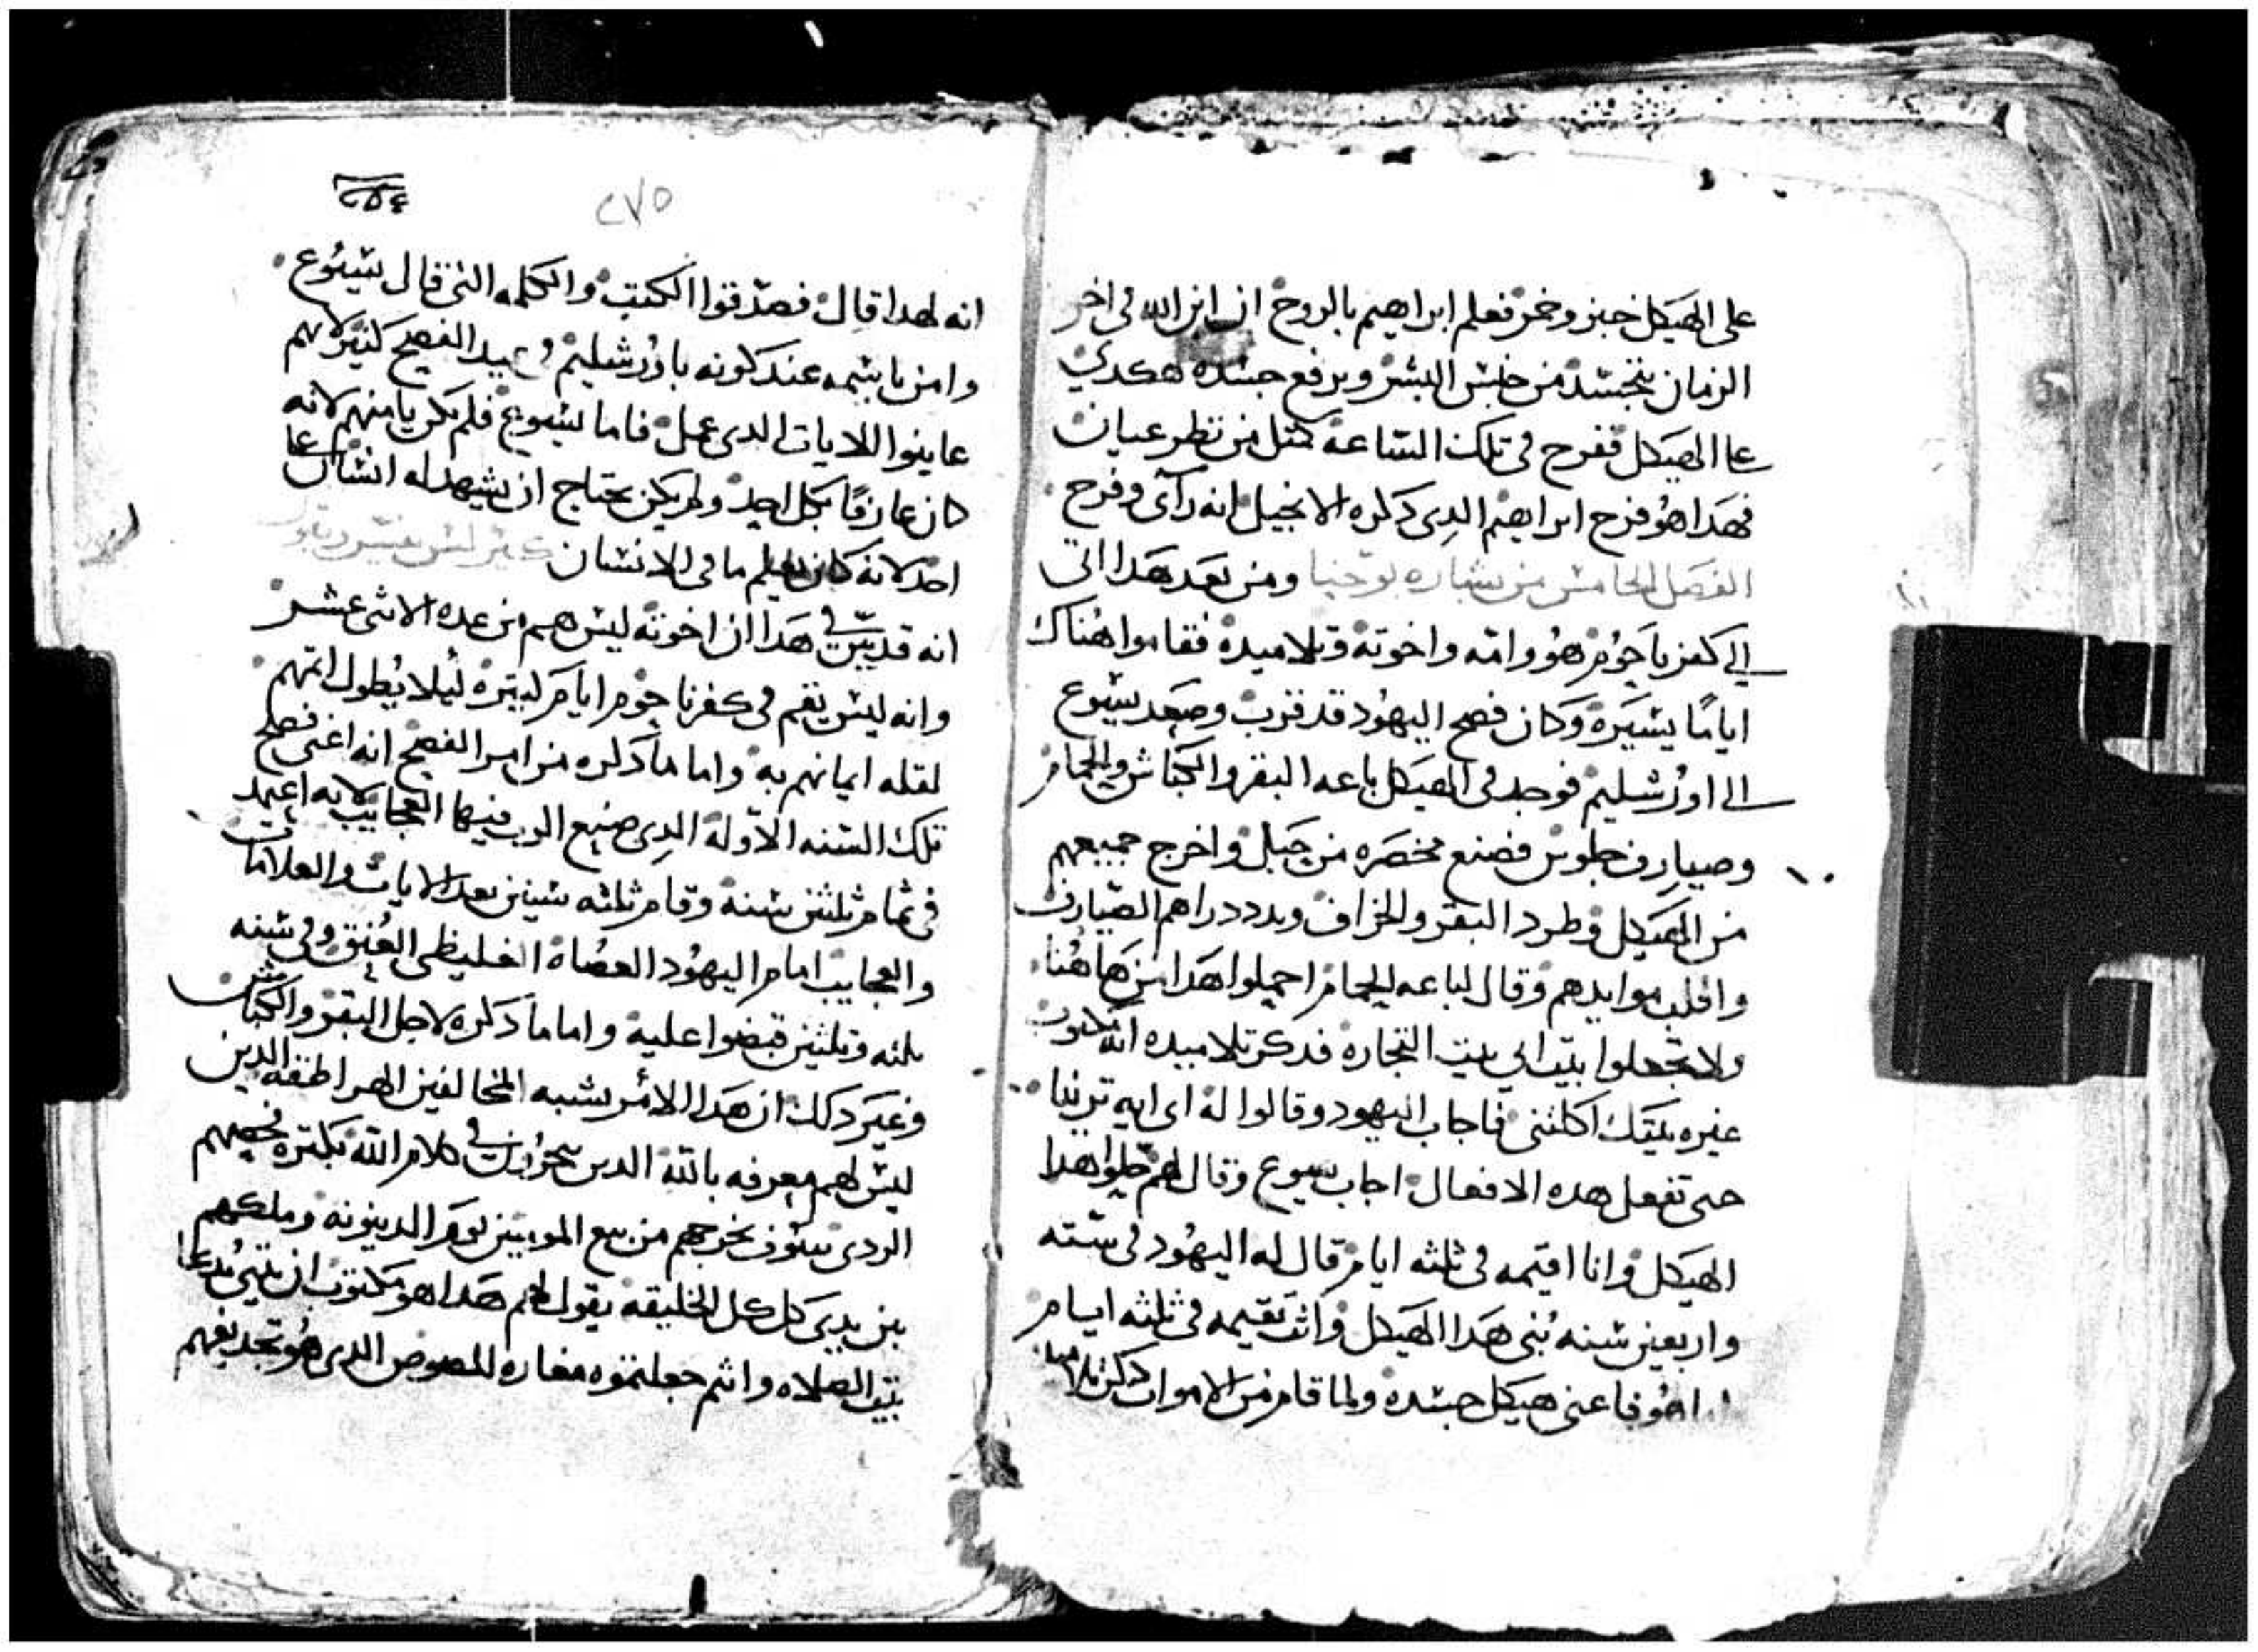 على الهيكل خبز وخمر فعلم ابراهيم بالروح ان ابن الله فى اخر
الزمان يتجسد من جنس البشر ويرفع جسده هكدي
عا الهيكل ففرح فى تلك الساعه كمثل من نظر عيان
فهدا هو فرح ابراهيم الدى دكره الانجيل انه رآى وفرح
الفصل الخامس من بشاره يوحنا ومن بعد هدا اتى
الى كفرناحوم هو وامه واخوته وتلاميده فقاموا هناك
اياما يسيره وكان فصح اليهود قد قرب وصعد يسوع
الى اورشليم فوجد فى الهيكل باعه البقر والكباش والحمام
وصيارف جلوس فصنع مخصره من حبل واخرج جميعهم
من الهيكل وطرد البقر والخراف وبدد دراهم الصيارف
واقلب موايدهم وقال لباعه الحمام احملوا هدا من هاهنا
ولا تجعلوا بيت ابي بيت التجاره فدكر تلاميده انه مكتوب
غيره بيتك اكلتنى فاجاب اليهود وقالوا له اى ايه ترينا
حتى تفعل هده الافعال اجاب يسوع وقال لهم حلوا هدا
الهيكل وانا اقيمه فى ثلثه ايام قال له اليهود فى سته
واربعين سنه بنى هدا الهيكل وانت تقيمه فى ثلثه ايام
هو فاعنى هيكل جسده ولما قام من الاموات دكر تلاميده
٢٧٥
٢٥٤
انه لهدا قال فصدقوا الكتب والكلمه التى قال يسوع
وامن باسمه عند كونه باورشليم فى عيد الفصح كثير لانهم
عاينوا اللايات الدى عمل فاما يسوع فلم يكن يامنهم لانه
كان عارفا بكل احد ولم يكن يحتاج ان يشهد له انسان عا
احد لانه كان يعلم ما فى الانسان
انه قد بين فى هدا ان اخوته ليس هم من عده الاثنى عشر
وانه ليس يقم فى كفرناحوم ايام كبيره ليلا يطول اتمهم
لقله ايمانهم به واما ما دكره من امر الفصح انه اعنى فصح
تلك السنه الاوله الدى صنع الرب فيها العجايب لانه اعتمد
فى تمام ثلثين سنه وقام ثلثه سنين بعد الايات والعلامات
والعجايب امام اليهود العصاه الغليظى العنق وفى سنه
ثلثه وثلثين قبضوا عليه واما ما دكره لاجل البقر والكباش
وغير دلك ان هدا الامر يشبه المخالفين الهراطقه الدين
ليس لهم معرفه بالله الدين يتجرون فى كلام الله بكتره فحصهم
الردى سوف يخرجهم من بيع المومنين يوم الدينونه وملكهم
بين يدى كل الخليقه يقول لهم هدا هو مكتوب ان بيتى يدعا
بيت الصلاه وانتم جعلتموه مغاره للصوص الدى هو تجديفهم